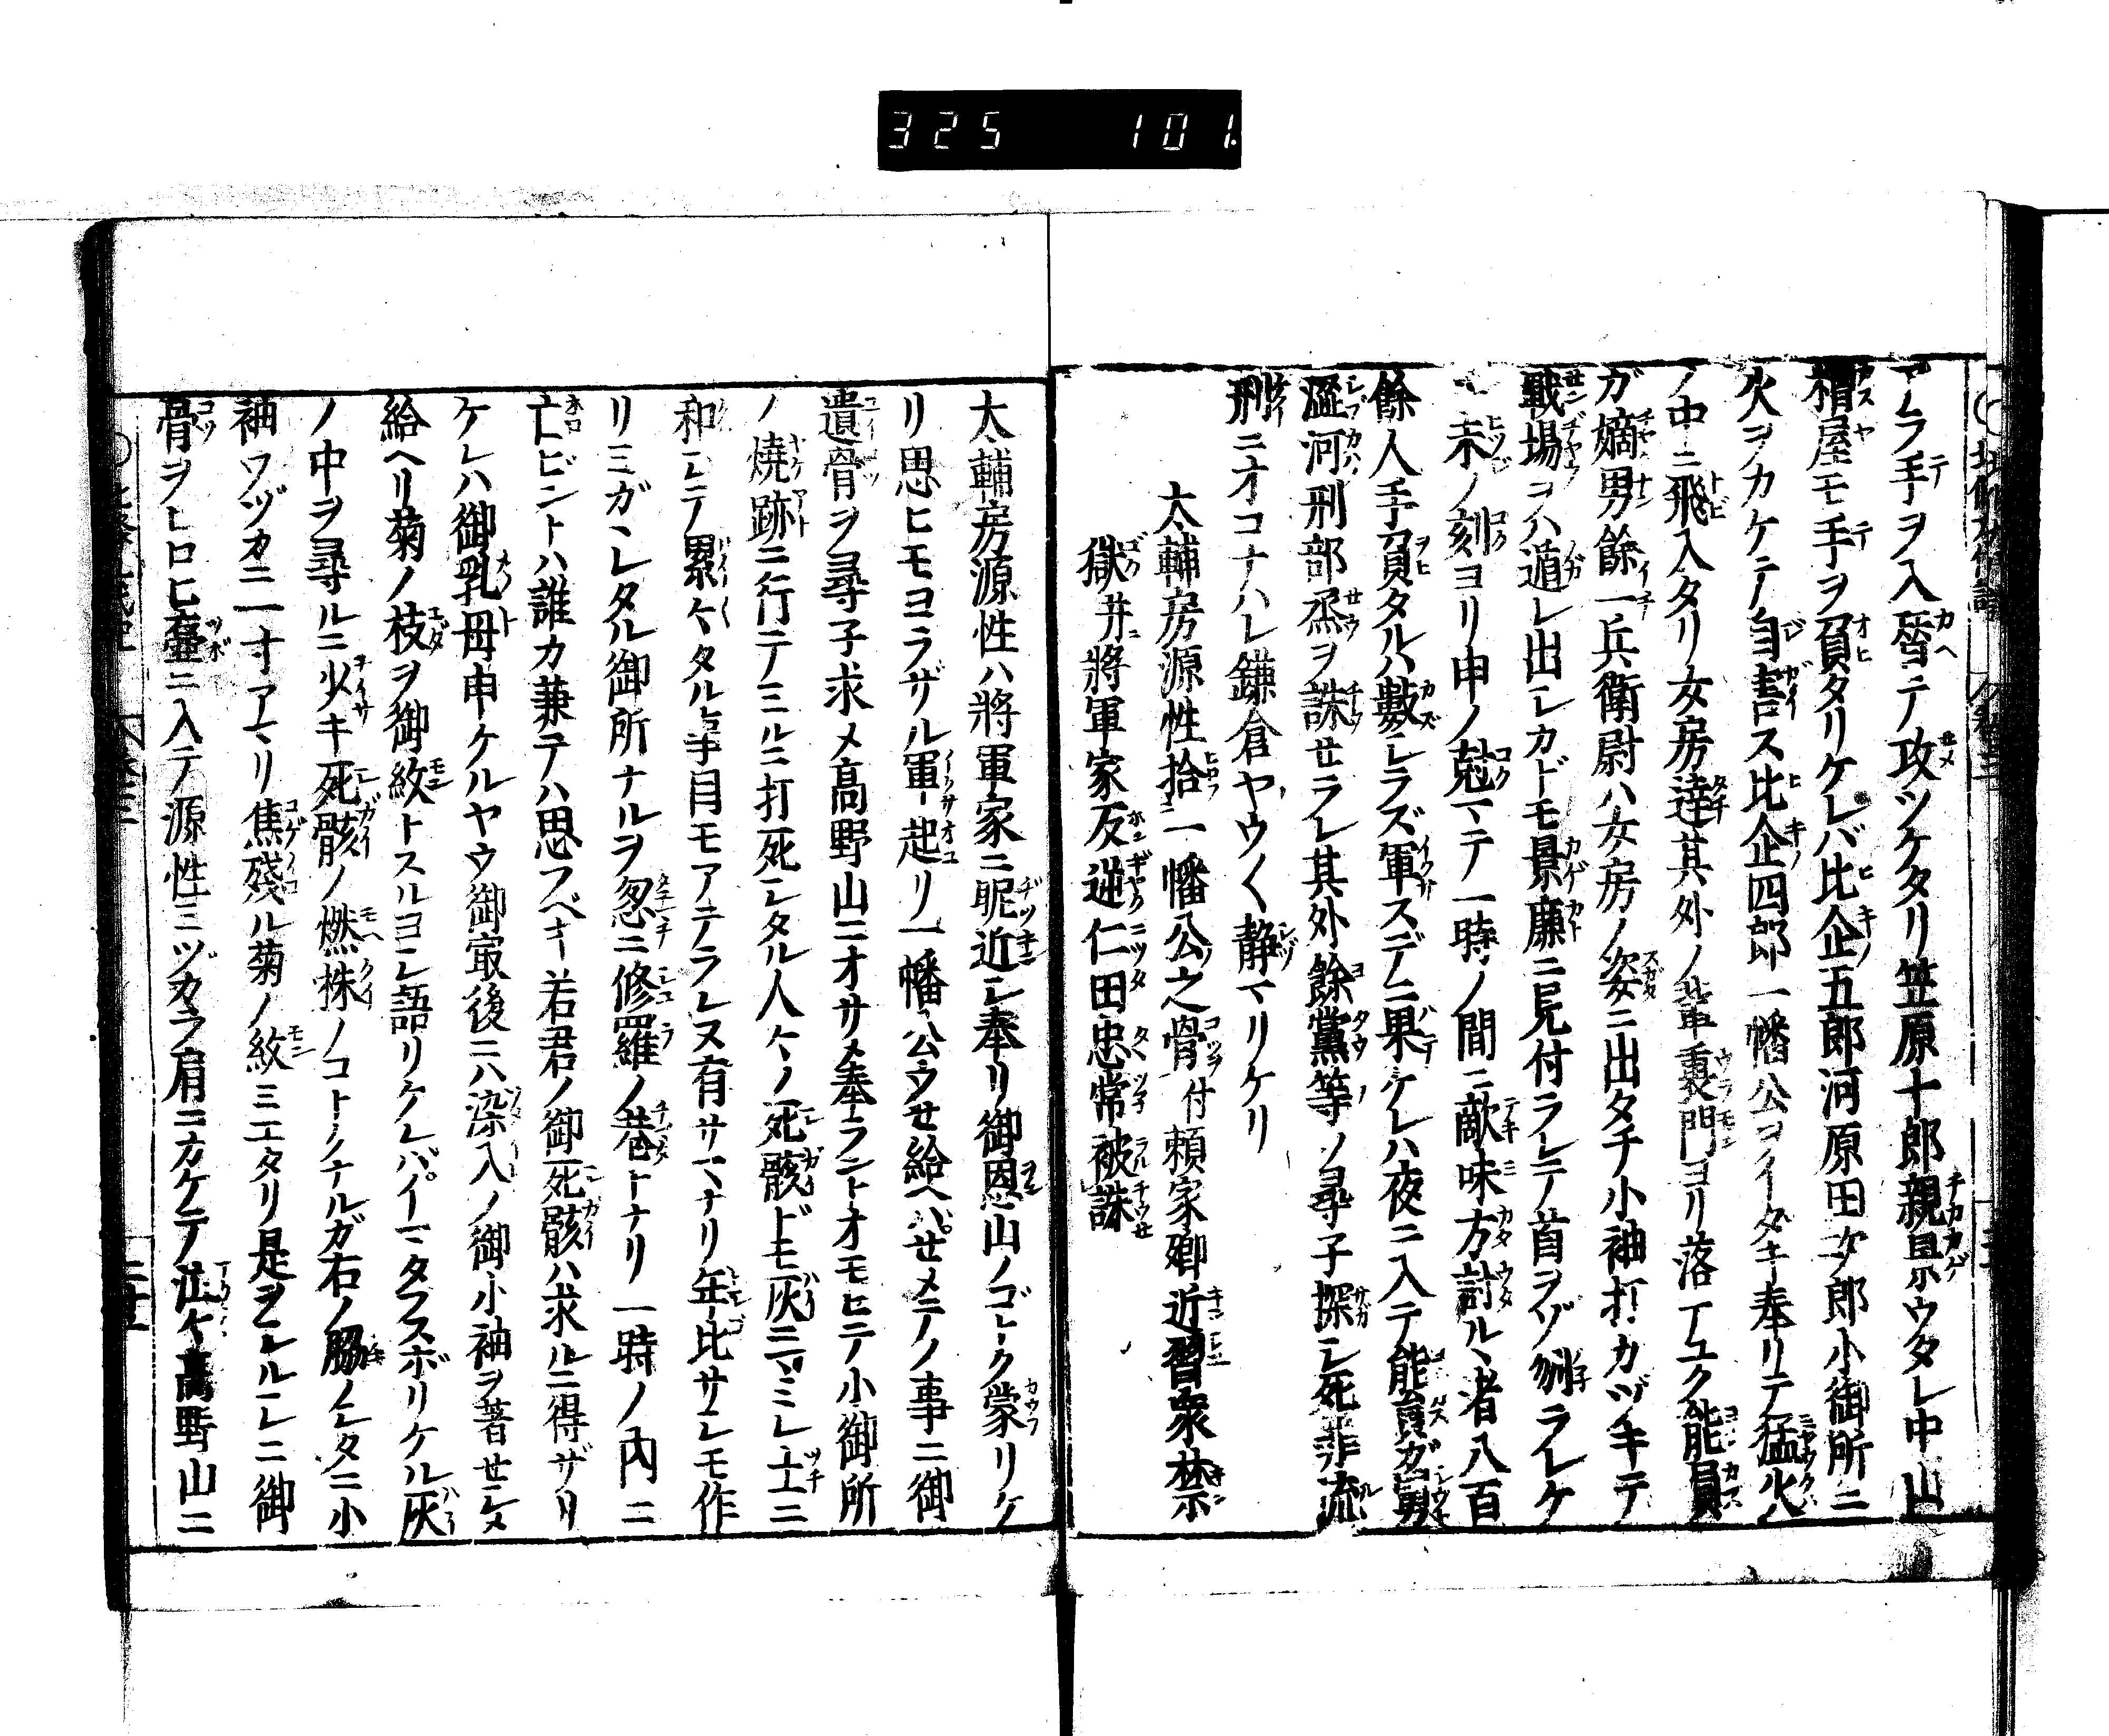 325 101.
アラ手ヲ入替テ攻ツケタリ笠原十郎親景ウタレ中山
糟屋モ手ヲ負タリケレバ比企五郎河原田次郎小御所ニ
火ヲカケテ自害ス比企四郎一幡公ヲイダキ奉リテ猛火
ノ中ニ飛入タリ女房達其外ノ輩裏門ヨリ落テユク能員
ガ嫡男餘一兵衛尉ハ女房ノ姿ニ出タチ小袖打カヅキテ
戰場ヲハ遁レ出シカドモ景廉ニ見付ラレテ首ヲゾ刎ラレケ
ル未ノ刻ヨリ申ノ尅マテ一時ノ間ニ敵味方討ルヽ者八百
餘人手負タルハ數シラズ軍スデニ果ケレハ夜ニ入テ能員ガ舅
澀河刑部烝ヲ誅セラレ其外餘黨等ヲ尋子探シ死罪流
刑ニオコナハレ鎌倉ヤウ〱静マリケリ
大輔房源性拾一幡公之骨付頼家卿近習衆禁
獄并將軍家反逆仁田忠常被誅
大輔房源性ハ將軍家ニ昵近シ奉リ御恩山ノゴトク蒙リケ
リ思ヒモヨラザル軍起リ一幡公ウセ給ヘバせメテノ事ニ御
遺骨ヲ尋子求メ高野山ニオサメ奉ラントオモヒテ小御所
ノ燒跡ニ行テミルニ打死シタル人々ノ死骸ドモ灰ニマミレ土ニ
和シテ累々タル事目モアテラレヌ有サマナリ年比サシモ作
リミガヽレタル御所ナルヲ忽ニ修羅ノ巷トナリ一時ノ内ニ
亡ビントハ誰カ兼テハ思フベキ若君ノ御死骸ハ求ルニ得ザリ
ケレハ御乳母申ケルヤウ御最後ニハ染入ノ御小袖ヲ著せシメ
給ヘリ菊ノ枝ヲ御紋トスルヨシ語リケレバイマタフスボリケル灰
ノ中ヲ尋ルニ少キ死骸ノ燃株ノコトクナルガ右ノ脇ノシタニ小
袖ワヅカニ一寸アマリ焦殘ル菊ノ紋ミエタリ是ヲシルシニ御
骨ヲヒロヒ壺ニ入テ源性ミヅカラ肩ニカケテ泣々高野山ニ